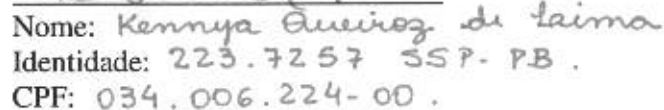 Nome: Kennya Queiroz de Laima
Identidade: 223.7257 SSP-PB.
CPF: 034.006.224-00.